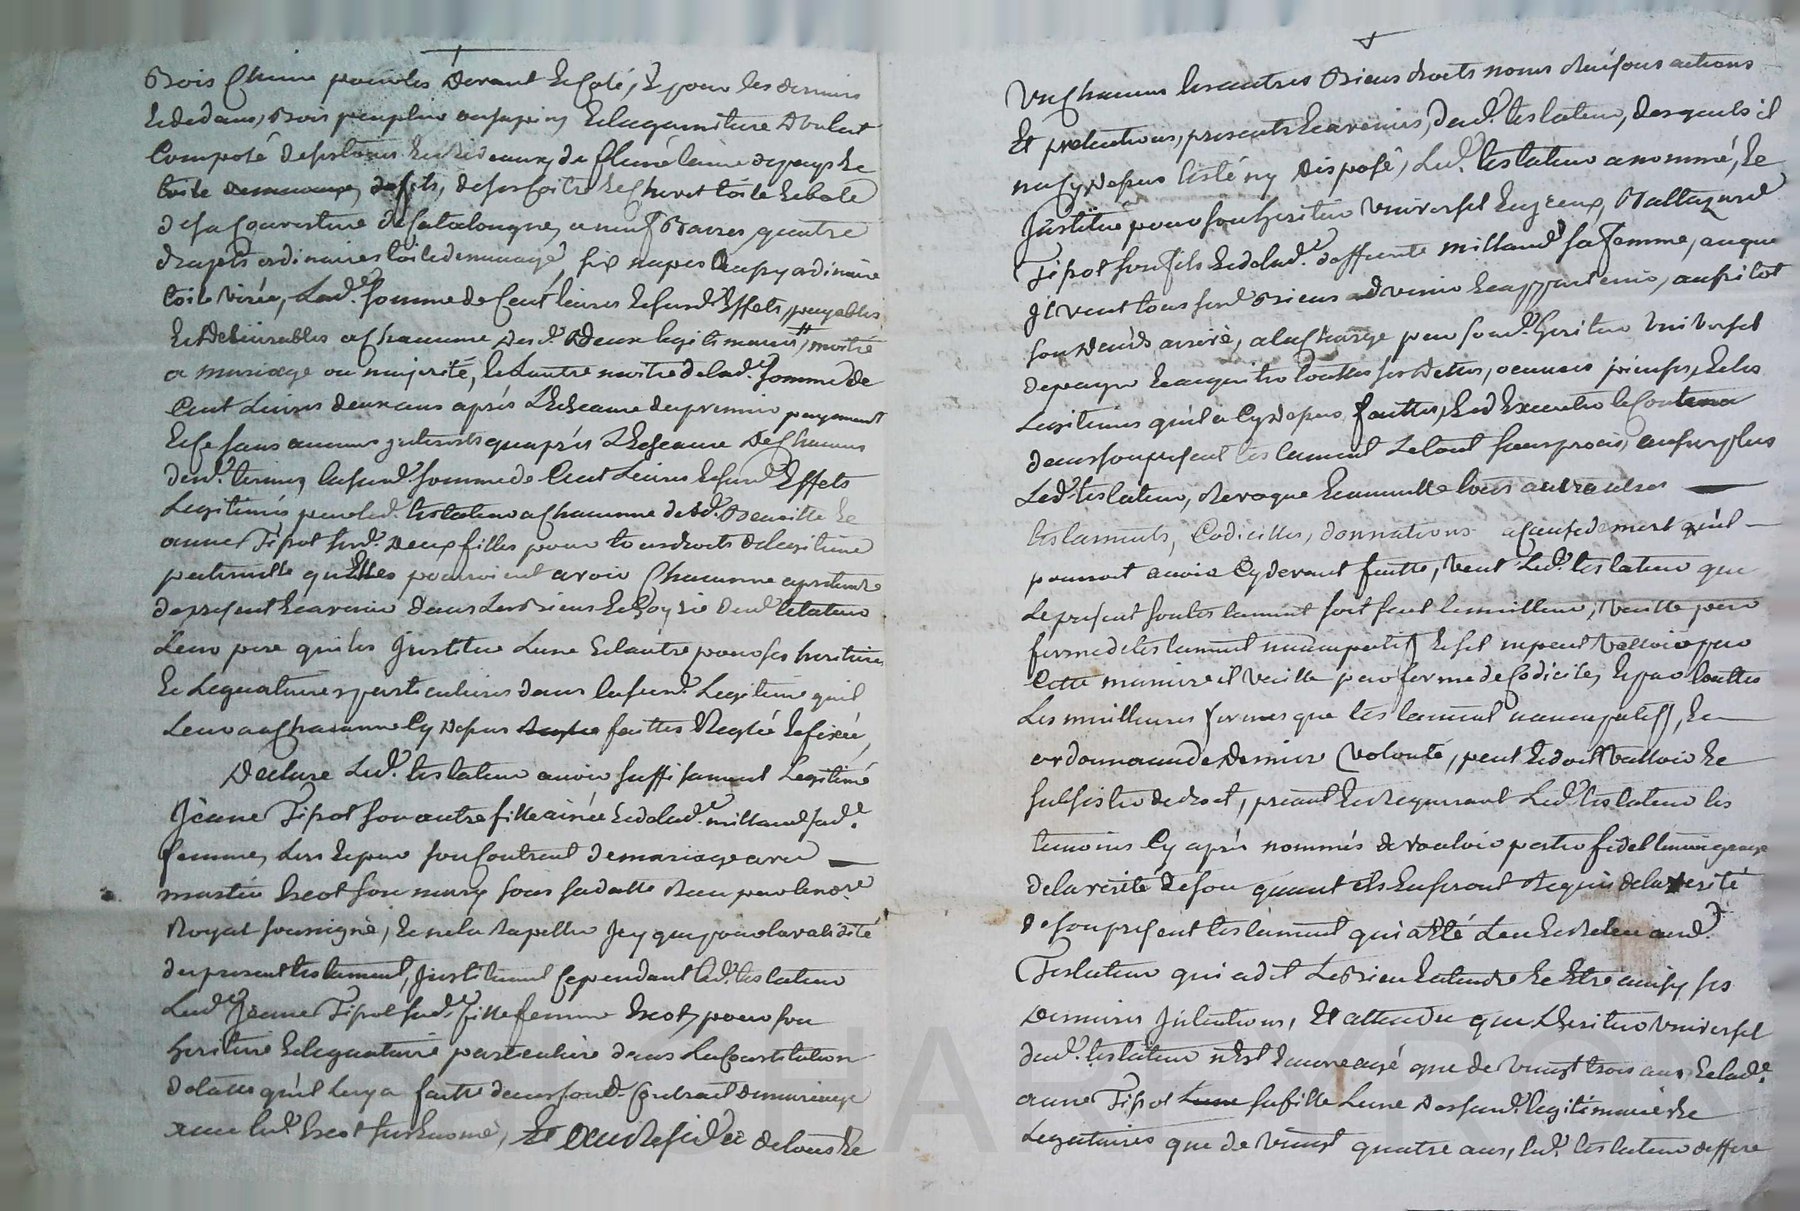 Bois Chaine pour les devant et Coté, & pour les derniers
et dedans, Bois peuplier ou sapin, et la garniture dud. lit
Composé de et Rideaux de laine du pays et
toile de ses Coitre et Chevet toile et bale
de sa Couverture de Catalougne, a neuf Barres, quatre
draps ordinaires toile de menage, six napes aussy ordinaire
toile Lad.e somme de Cent livres et susd. Effets, payables
et delivrables a Chacune desd. deux legitimaires, moitié
a mariage ou majorité, et l'autre moitié de lad.e somme de
Cent Livres deux ans après L'Echeance du premier payement
et Ce sans aucuns jnterests qu'après L'Echeance de Chacun
desd. termes, lasusd. somme de Cent Livres et susd. Effets
Legitimés par led. testateur a Chacune desd. et
anne Tipot susd. deux filles pour tous droits de legitime
paternelle qu'Elles pourroient avoir Chacune a pretendre
de present et avenir dans Les Biens et dud. testateur
Leur pere qui les jnstitue Lune et lautre pour ses heritieres
et Legataires particulieres dans lasusd. Legitime qu'il
Leur a a Chacune Cy dessus faittes Reglé et fixée,
Declare Led. testateur avoir suffisament Legitimé
Jeanne Tipot son autre fille ainée et de lad.e millaud sad.e
femme, Lors et par son Contrat de mariage avec
martin son mary sous sa datte Receu par le no.re
Royal soussigné, et ne la Rapeller jcy que pour la validité
du present testament, jnstituant Cependant led. testateur
Lad.e Jeanne Tipot sad.e fille femme pour son
heritiere et legataire particuliere dans La Constitution
delatte qu'il luy a faitte dans sond. Contrat de mariage
avec led. susnomé, Et au Residû de tous et
Un Chacuns les autres Biens droits noms Raisons actions
Et pretentions, presents et avenirs, dud. testateur, desquels il
na Cy dessus testé ny disposé, Led. testateur a nommé, et
jnstitué pour son heritier Universel Baltazard
Tipot son fils et de lad.e deffunte millaud sa femme, auquel
jl veut tous sesd. Biens advenir et appartenir, aussitot
son deces arrivé, a la Charge par sond. heritier Universel
de payer et acquitter touttes ses dettes, et les
Legitimes qu'il a Cy dessus faittes, et d'Executer le Contenu
dans son present testament Le tout sans procès, au surplus
Led. testateur, Revoque et annulle tous autres
testaments, Codicilles, donnations a Cause de mort qu'il
pourroit avoir Cy devant faitte, veut Led. testateur que
Le present son testament soit seul le meilleur, vaille par
forme de testament nuncupatif, et s'il ne peut valloir par
Cette maniere il veuille par forme de Codicile, et par touttes
Les meilleures formes que testament nuncupatif, et
ordonnance de derniere Volonté, peut et doit Valloir et
subsister de droit, priant et Requerant Led. testateur les
temoins Cy après nommés de vouloir porter fidel temoignage
de la verité quant ils en seront Requis de la verité
de son present testament qui a été Leu et Releu aud.
Testateur qui a dit Le Bien Entendre et Etre ainsy ses
Dernieres jntentions, Et attendu que L'heritier Universel
dud. testateur n'Est Encore agé que de Vingt trois ans et lad.e
anne Tipot sa fille Lune desd. legitimaires et
Legataires que de Vingt quatre ans, led. testateur